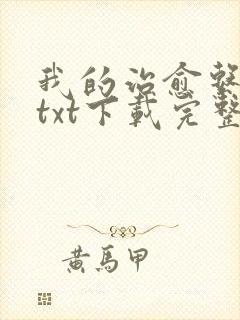 我的治愈繫
txt下載完整
黄馬甲